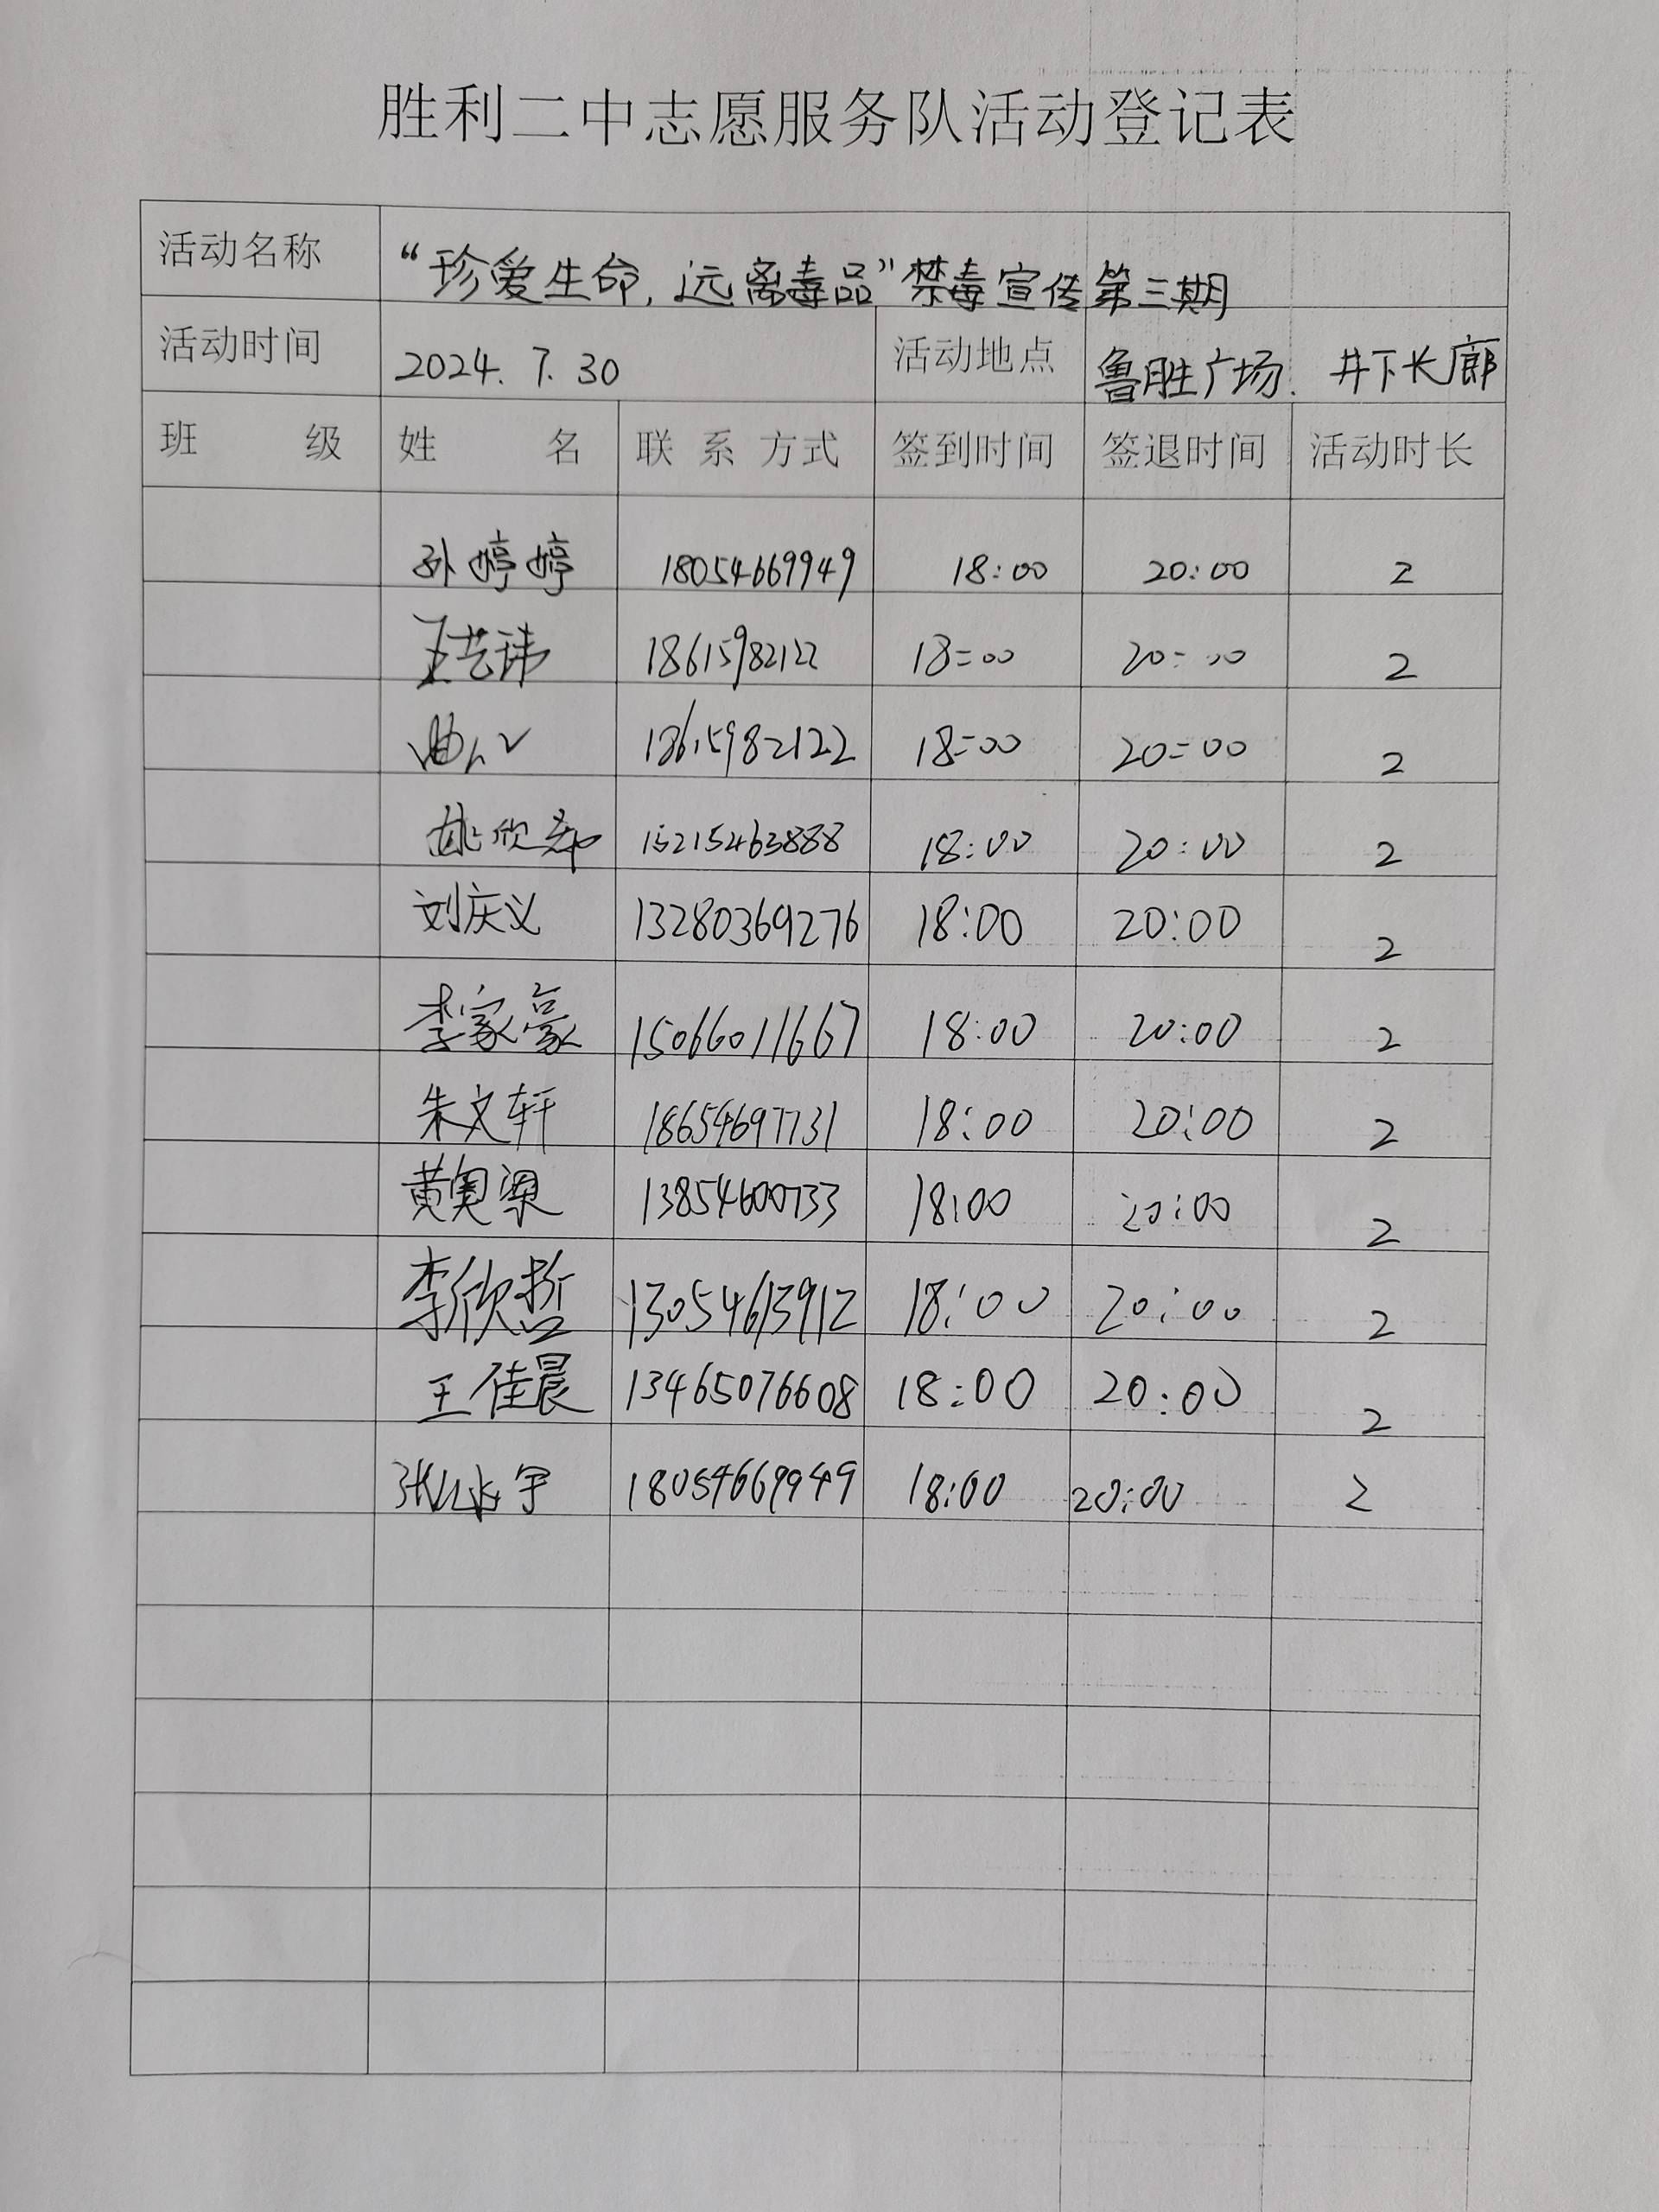 胜利二中志愿服务队活动登记表
活动名称 “珍爱生命，远离毒品”禁毒宣传第三期
活动时间 2024. 7. 30 活动地点 鲁胜广场、井下长廊
班 级 姓 名 联 系 方式 签到时间 签退时间 活动时长
孙婷婷 18054669949 18:00 20:00 2
王艺玮 18615982122 18:00 20:00 2
18615982122 18:00 20:00 2
姚欣彤 15215463888 18:00 20:00 2
刘庆义 13280369276 18:00 20:00 2
李家豪 15066011667 18:00 20:00 2
朱文轩 18654697731 18:00 20:00 2
黄奥梁 13854600733 18:00 20:00 2
李欣哲 13054613912 18:00 20:00 2
王佳晨 13465076608 18:00 20:00 2
宇 18054669949 18:00 20:00 2